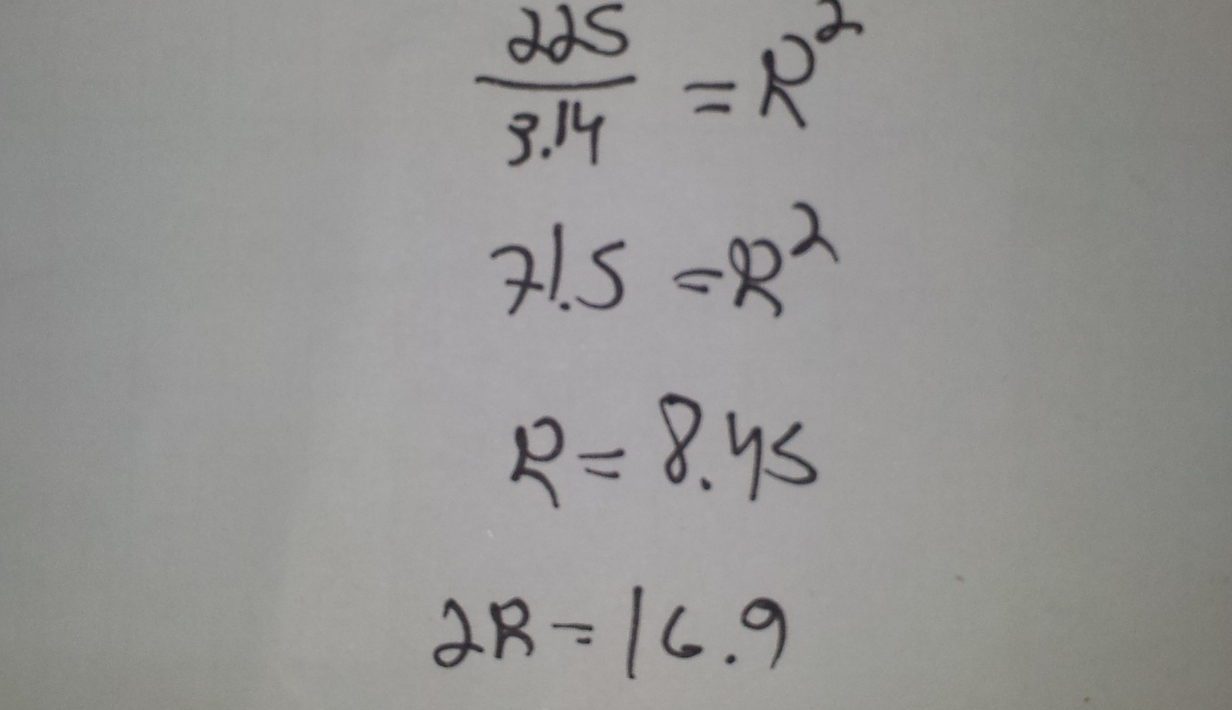 225
3.14 = R²
71.5 = R²
R = 8.45
2R = 16.9